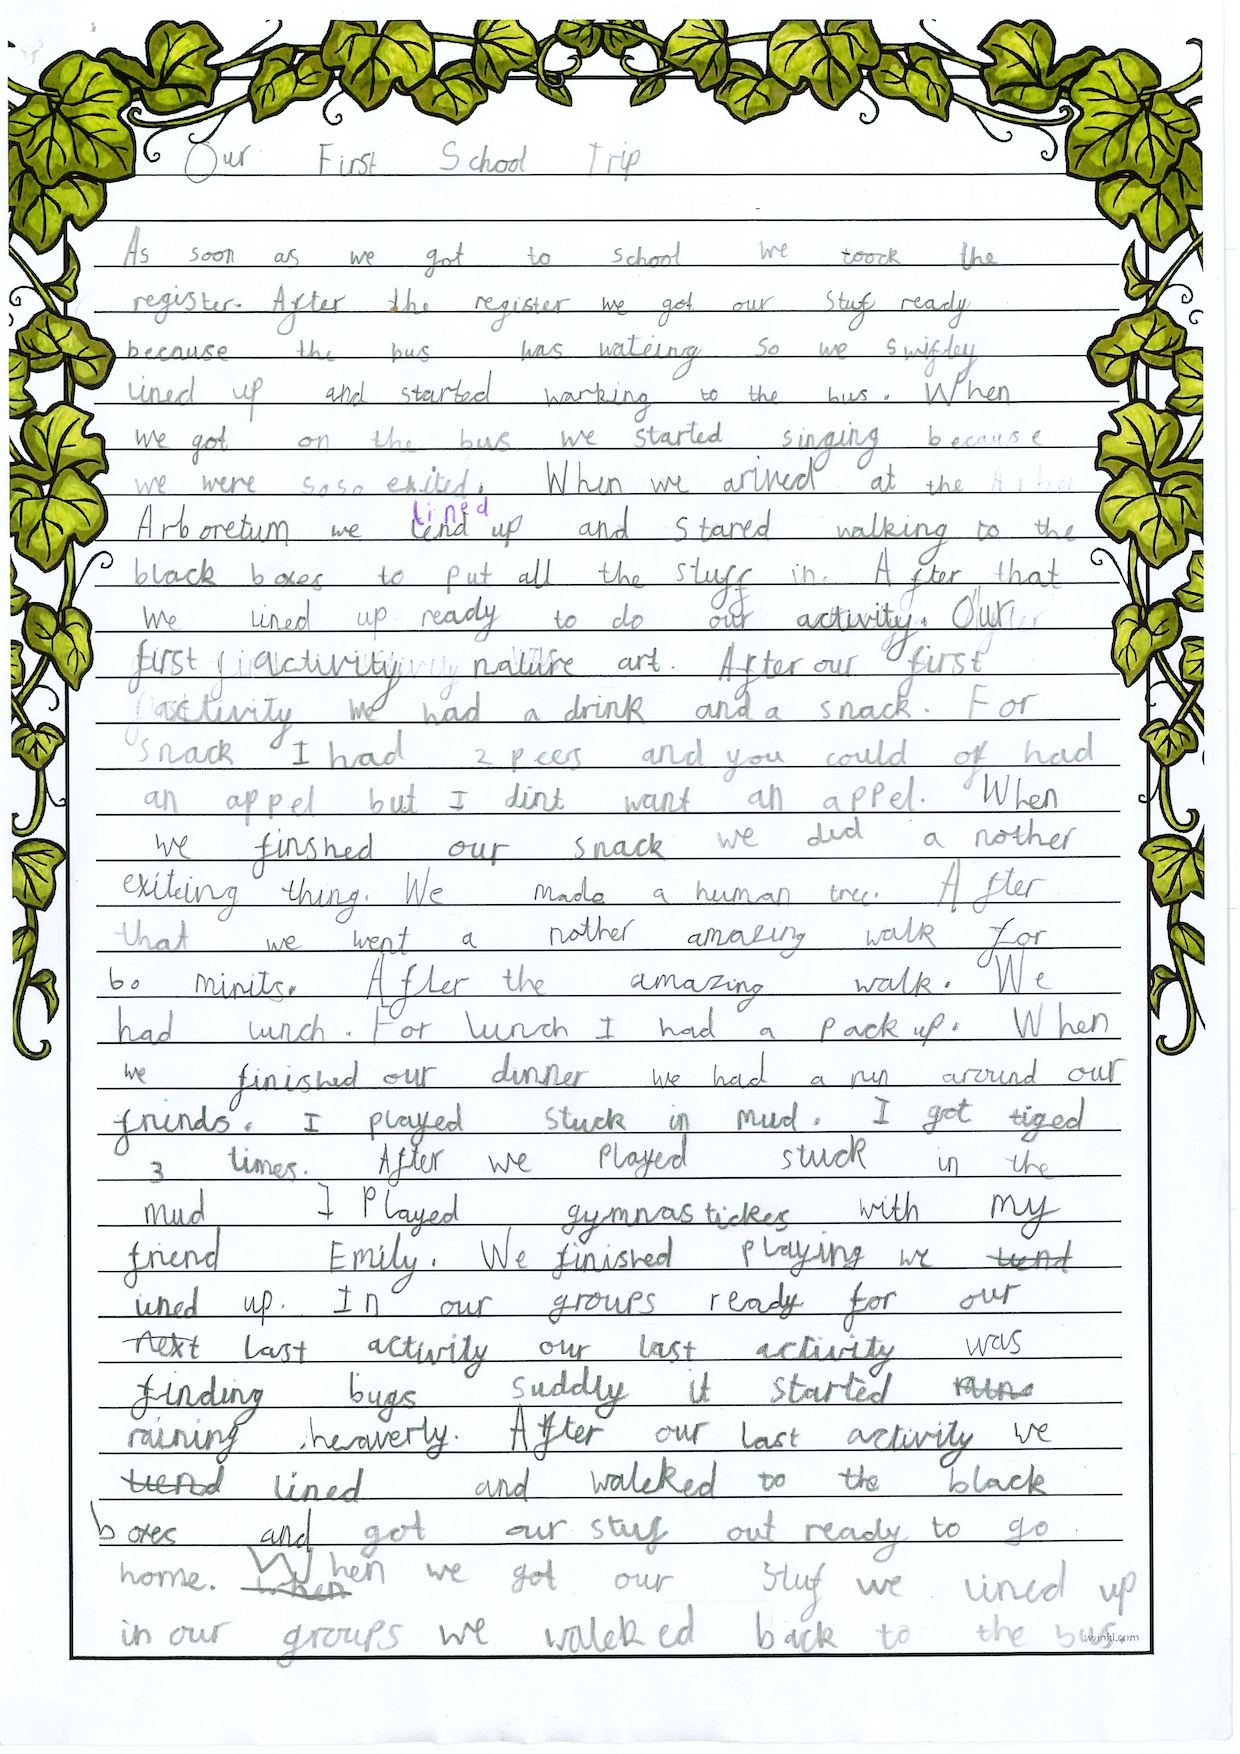 Our First School Trip
As soon as we got to school we toock the
register. After the register we got our stuf ready
because the bus was wateing so we swifley
lined up and started warking to the bus. When
we got on the bus we started singing because
we were so so exited. When we arived at the
lined
Arboretum we lend up and stared walking to the
black boxes to put all the stuff in. After that
we lined up ready to do our activity. Our
first activity nature art. After our first
activity we had a drink and a snack. For
snack I had 2 peers and you could of had
an appel but I dint want an appel. When
we finshed our snack we did a nother
exiteing thing. We made a human tree. After
that we went a nother amazing walk for
60 minits. After the amazing walk. We
had lunch. For lunch I had a pack up. When
we finished our dinner we had a run around our
friends. I played stuck in mud. I got tiged
3 times. After we played stuck in the
mud I played gymnastickes with my
friend Emily. We finished playing we lend
lined up. In our groups ready for our
next last activity our last activity was
finding bugs suddly it started
raining heaverly. After our last activity we
liend lined and walcked to the black
boxes and got our stuf out ready to go
home. When When we got our stuf we lined up
in our groups we walcked back to the bus.
twinkl.com